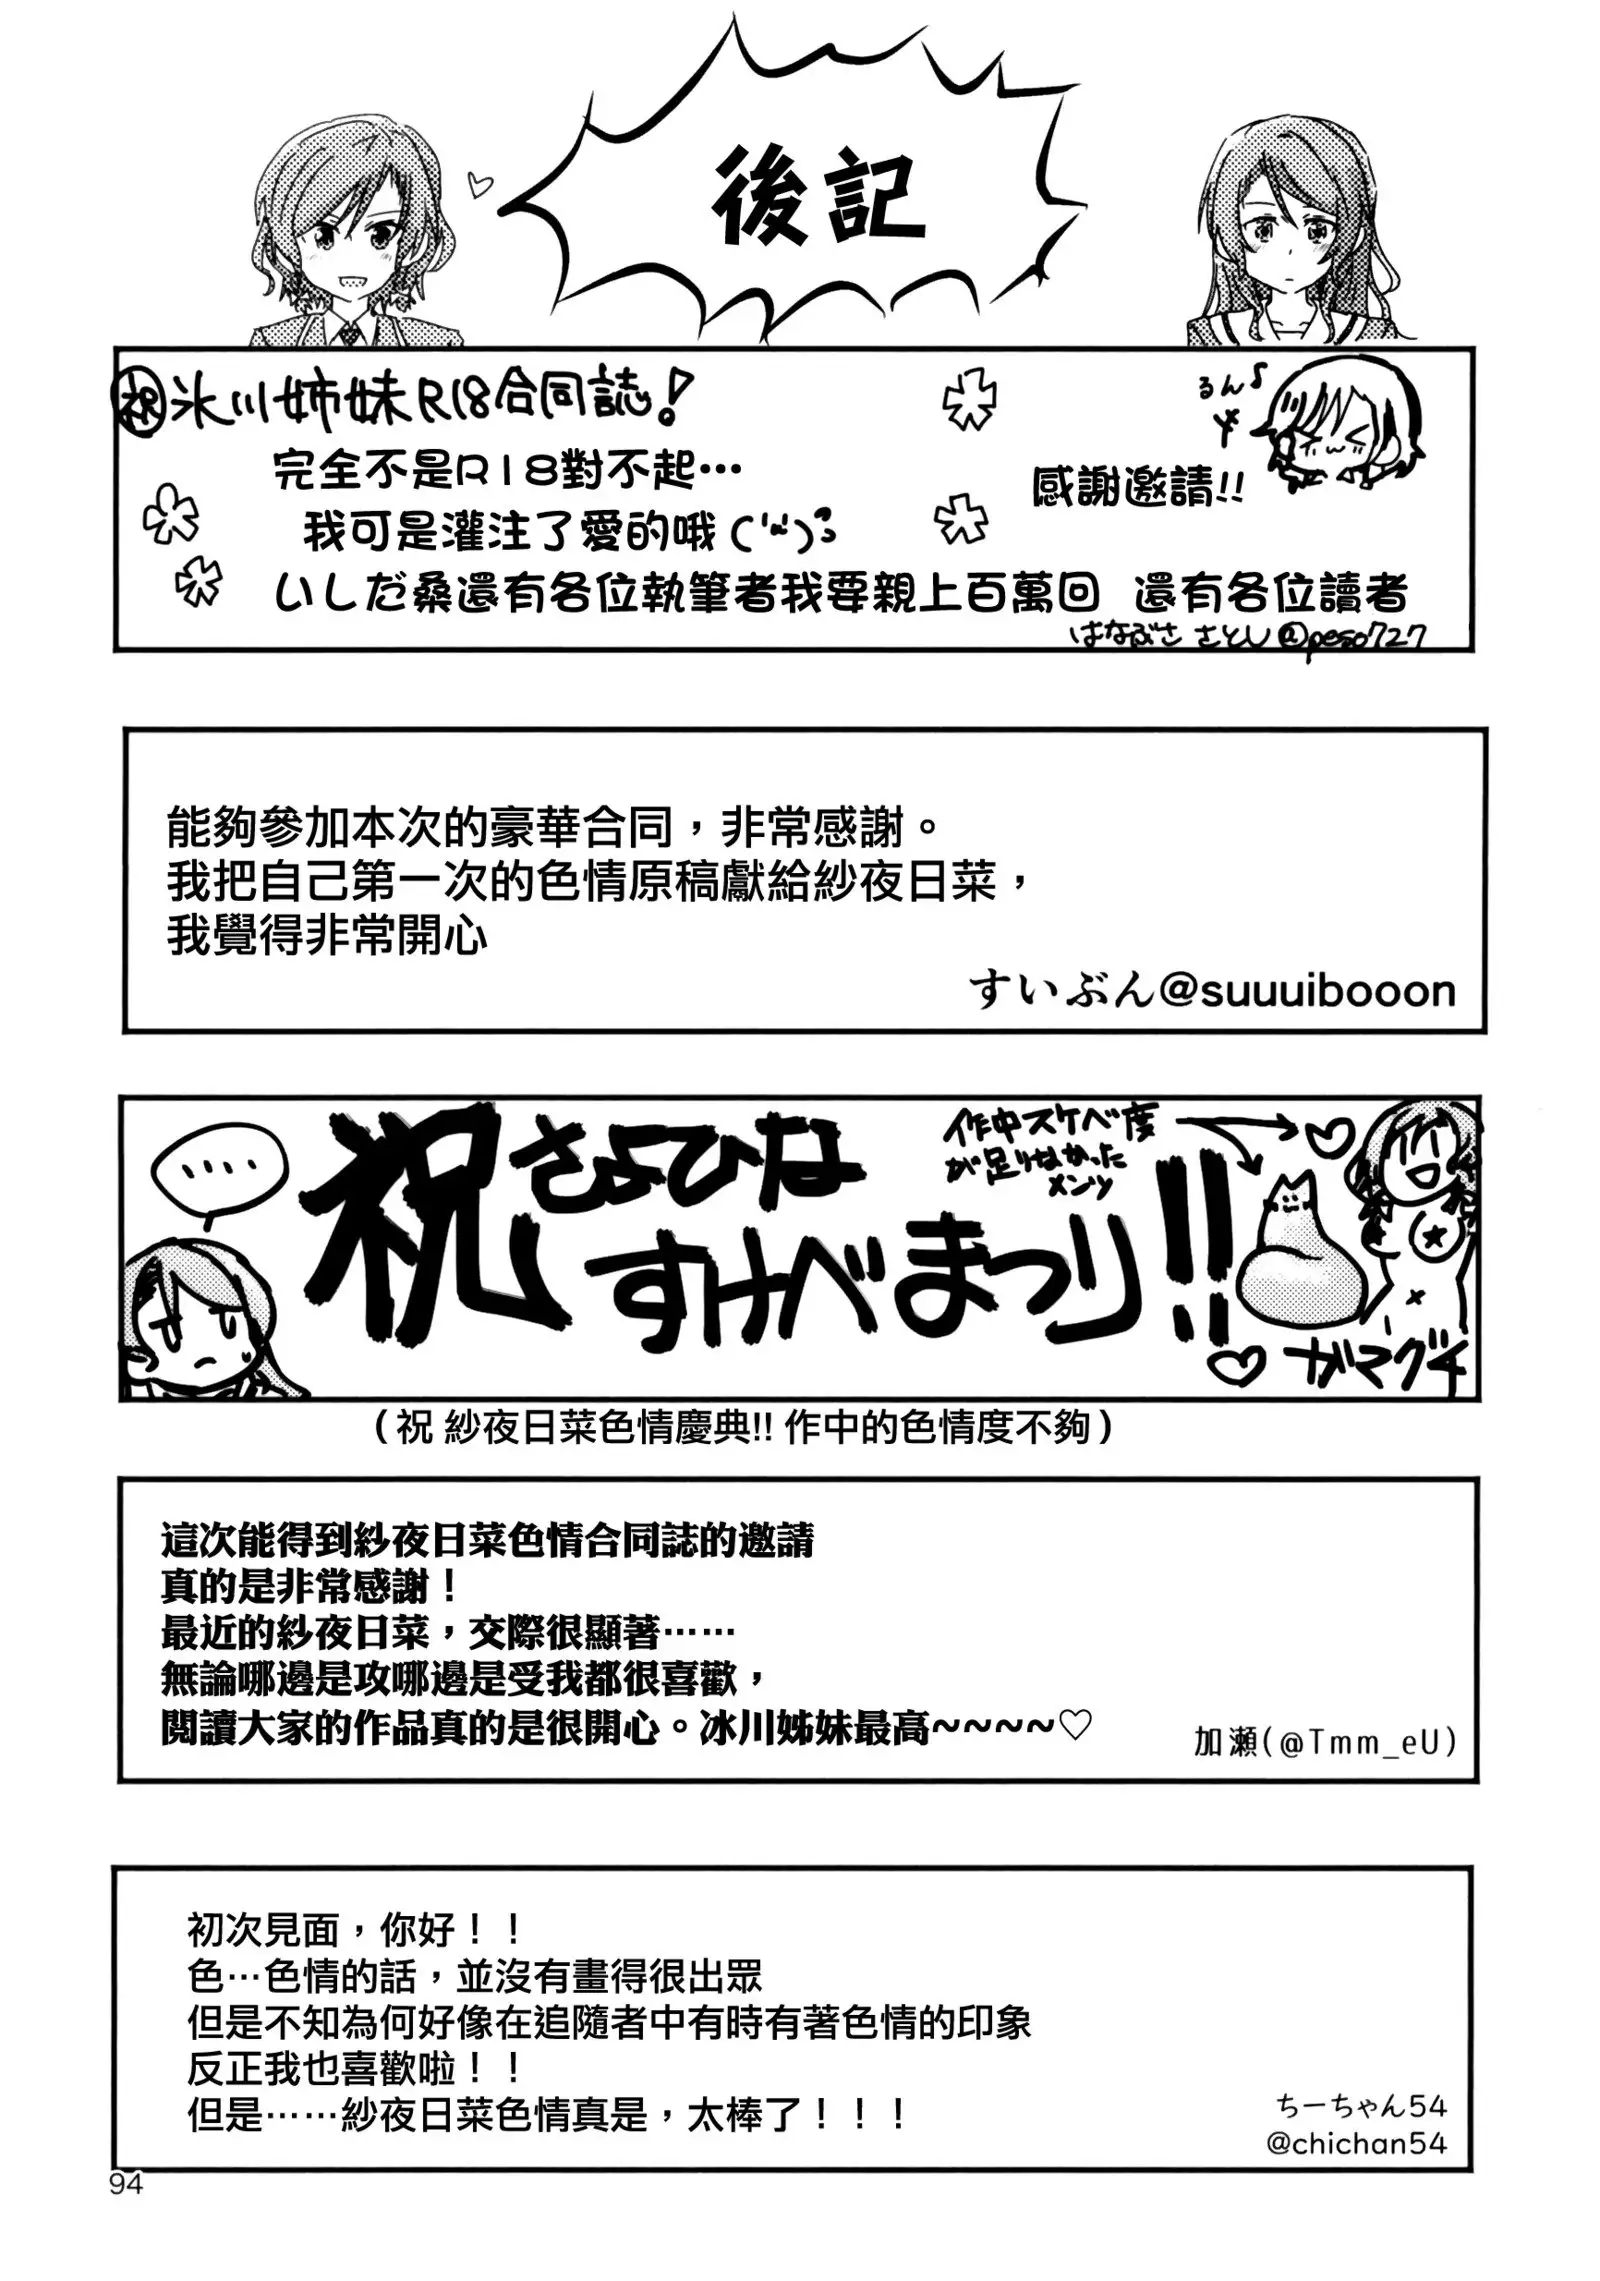 後記
祝 氷川姉妹R18合同誌!
るん♪
完全不是R18對不起…
感謝邀請!!
我可是灌注了愛的哦
いしだ桑還有各位執筆者我要親上百萬回 還有各位讀者
はなぶさ さとし @peso727
能夠參加本次的豪華合同，非常感謝。
我把自己第一次的色情原稿獻給紗夜日菜，
我覺得非常開心
すいぶん@suuuibooon
....
祝 さよひな
すけべまつり!!
作中スケベ度
が足りなかった
メンツ
ガマグチ
（祝 紗夜日菜色情慶典!! 作中的色情度不夠）
這次能得到紗夜日菜色情合同誌的邀請
真的是非常感謝！
最近的紗夜日菜，交際很顯著……
無論哪邊是攻哪邊是受我都很喜歡，
閱讀大家的作品真的是很開心。冰川姊妹最高~~~~♡
加瀬(@Tmm_eU)
初次見面，你好！！
色…色情的話，並沒有畫得很出眾
但是不知為何好像在追隨者中有時有著色情的印象
反正我也喜歡啦！！
但是……紗夜日菜色情真是，太棒了！！！
ちーちゃん54
@chichan54
94